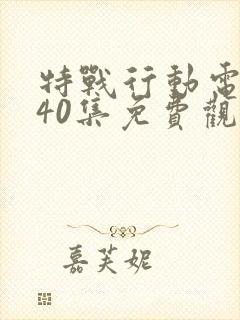 特戰行動電
40集免費觀
嘉芙妮